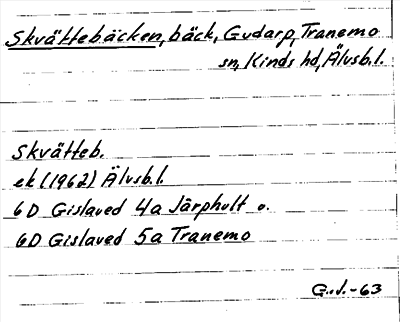 Skvättebäcken, bäck, Gudarp, Tranemo
sn, Kinds hd, Älvsb.l.
Skvätteb.
ek (1962) Älvsb.l.
6D Gislaved 4a Järphult o.
6D Gislaved 5a Tranemo
G.J.-63